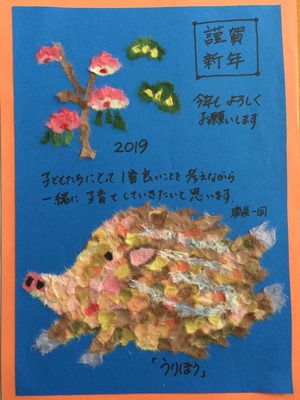 謹賀
新年
今年も よろしく
お願いします
2019
子どもたちにとって 1番良いことを 考えながら
一緒に 子育てしていきたいと 思います。
職員一同
「うりぼう」